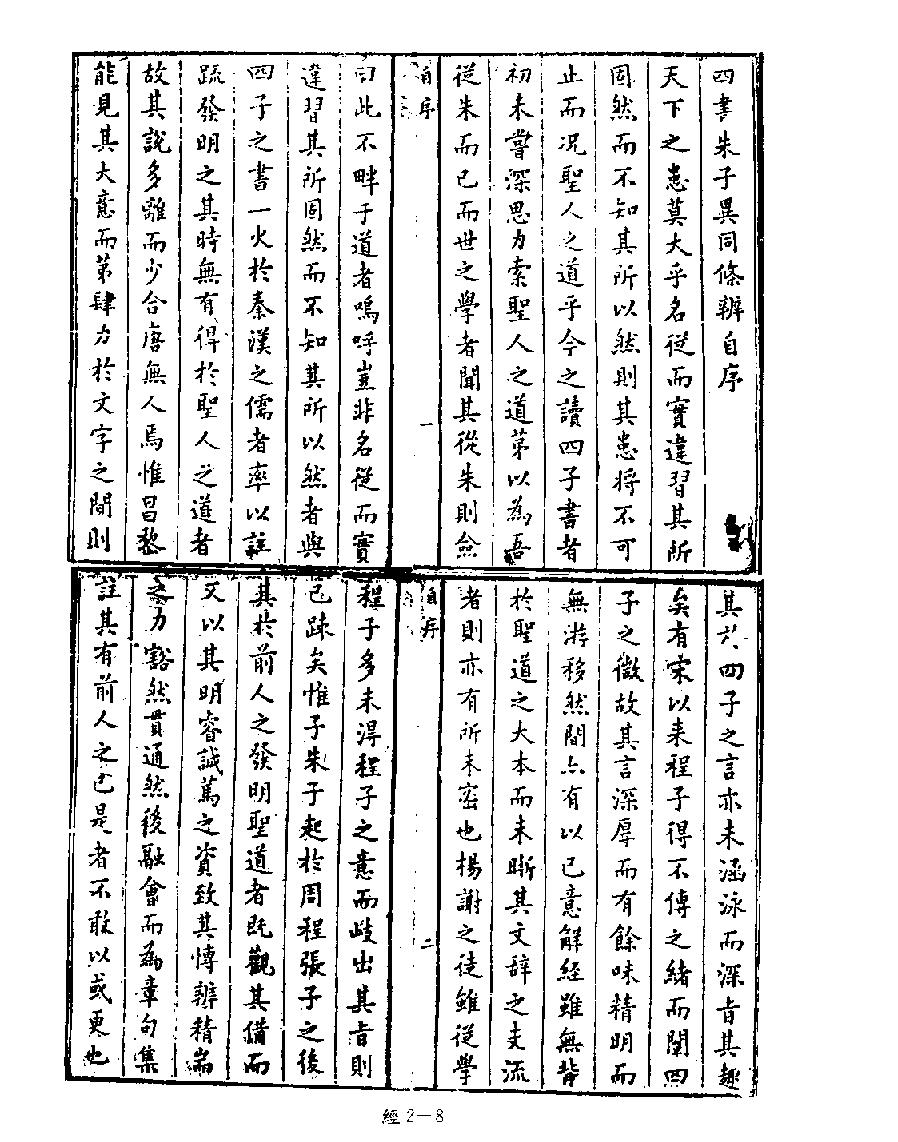 四書朱子異同條辨自序
天下之患莫大乎名從而實違習其所
固然而不知其所以然則其患將不可
止而况聖人之道乎今之讀四子書者
初未嘗深思力索聖人之道第以為吾
從朱而已而世之學者聞其從朱則僉
自序 一
曰此不畔于道者嗚呼豈非名從而實
違習其所固然而不知其所以然者與
四子之書一火於秦漢之儒者率以註
疏發明之其時無有得於聖人之道者
故其說多離而少合唐無人焉惟昌黎
能見其大意而第肆力於文字之間則
其於四子之言亦未涵泳而深旨其趣
矣有宋以来程子得不傳之緒而闡四
子之微故其言深厚而有餘味精明而
無游移然間亦有以已意解經雖無背
於聖道之大本而未晰其文辞之支流
者則亦有所未密也楊謝之徒雖從學
自序 二
程子多未得程子之意而歧出其旨則
已疎矣惟子朱子起於周程張子之後
其於前人之發明聖道者旣觀其備而
又以其明睿誠篤之資致其愽辨精耑
之力豁然貫通然後融會而為章句集
註其有前人之已是者不敢以或更也
經2－8